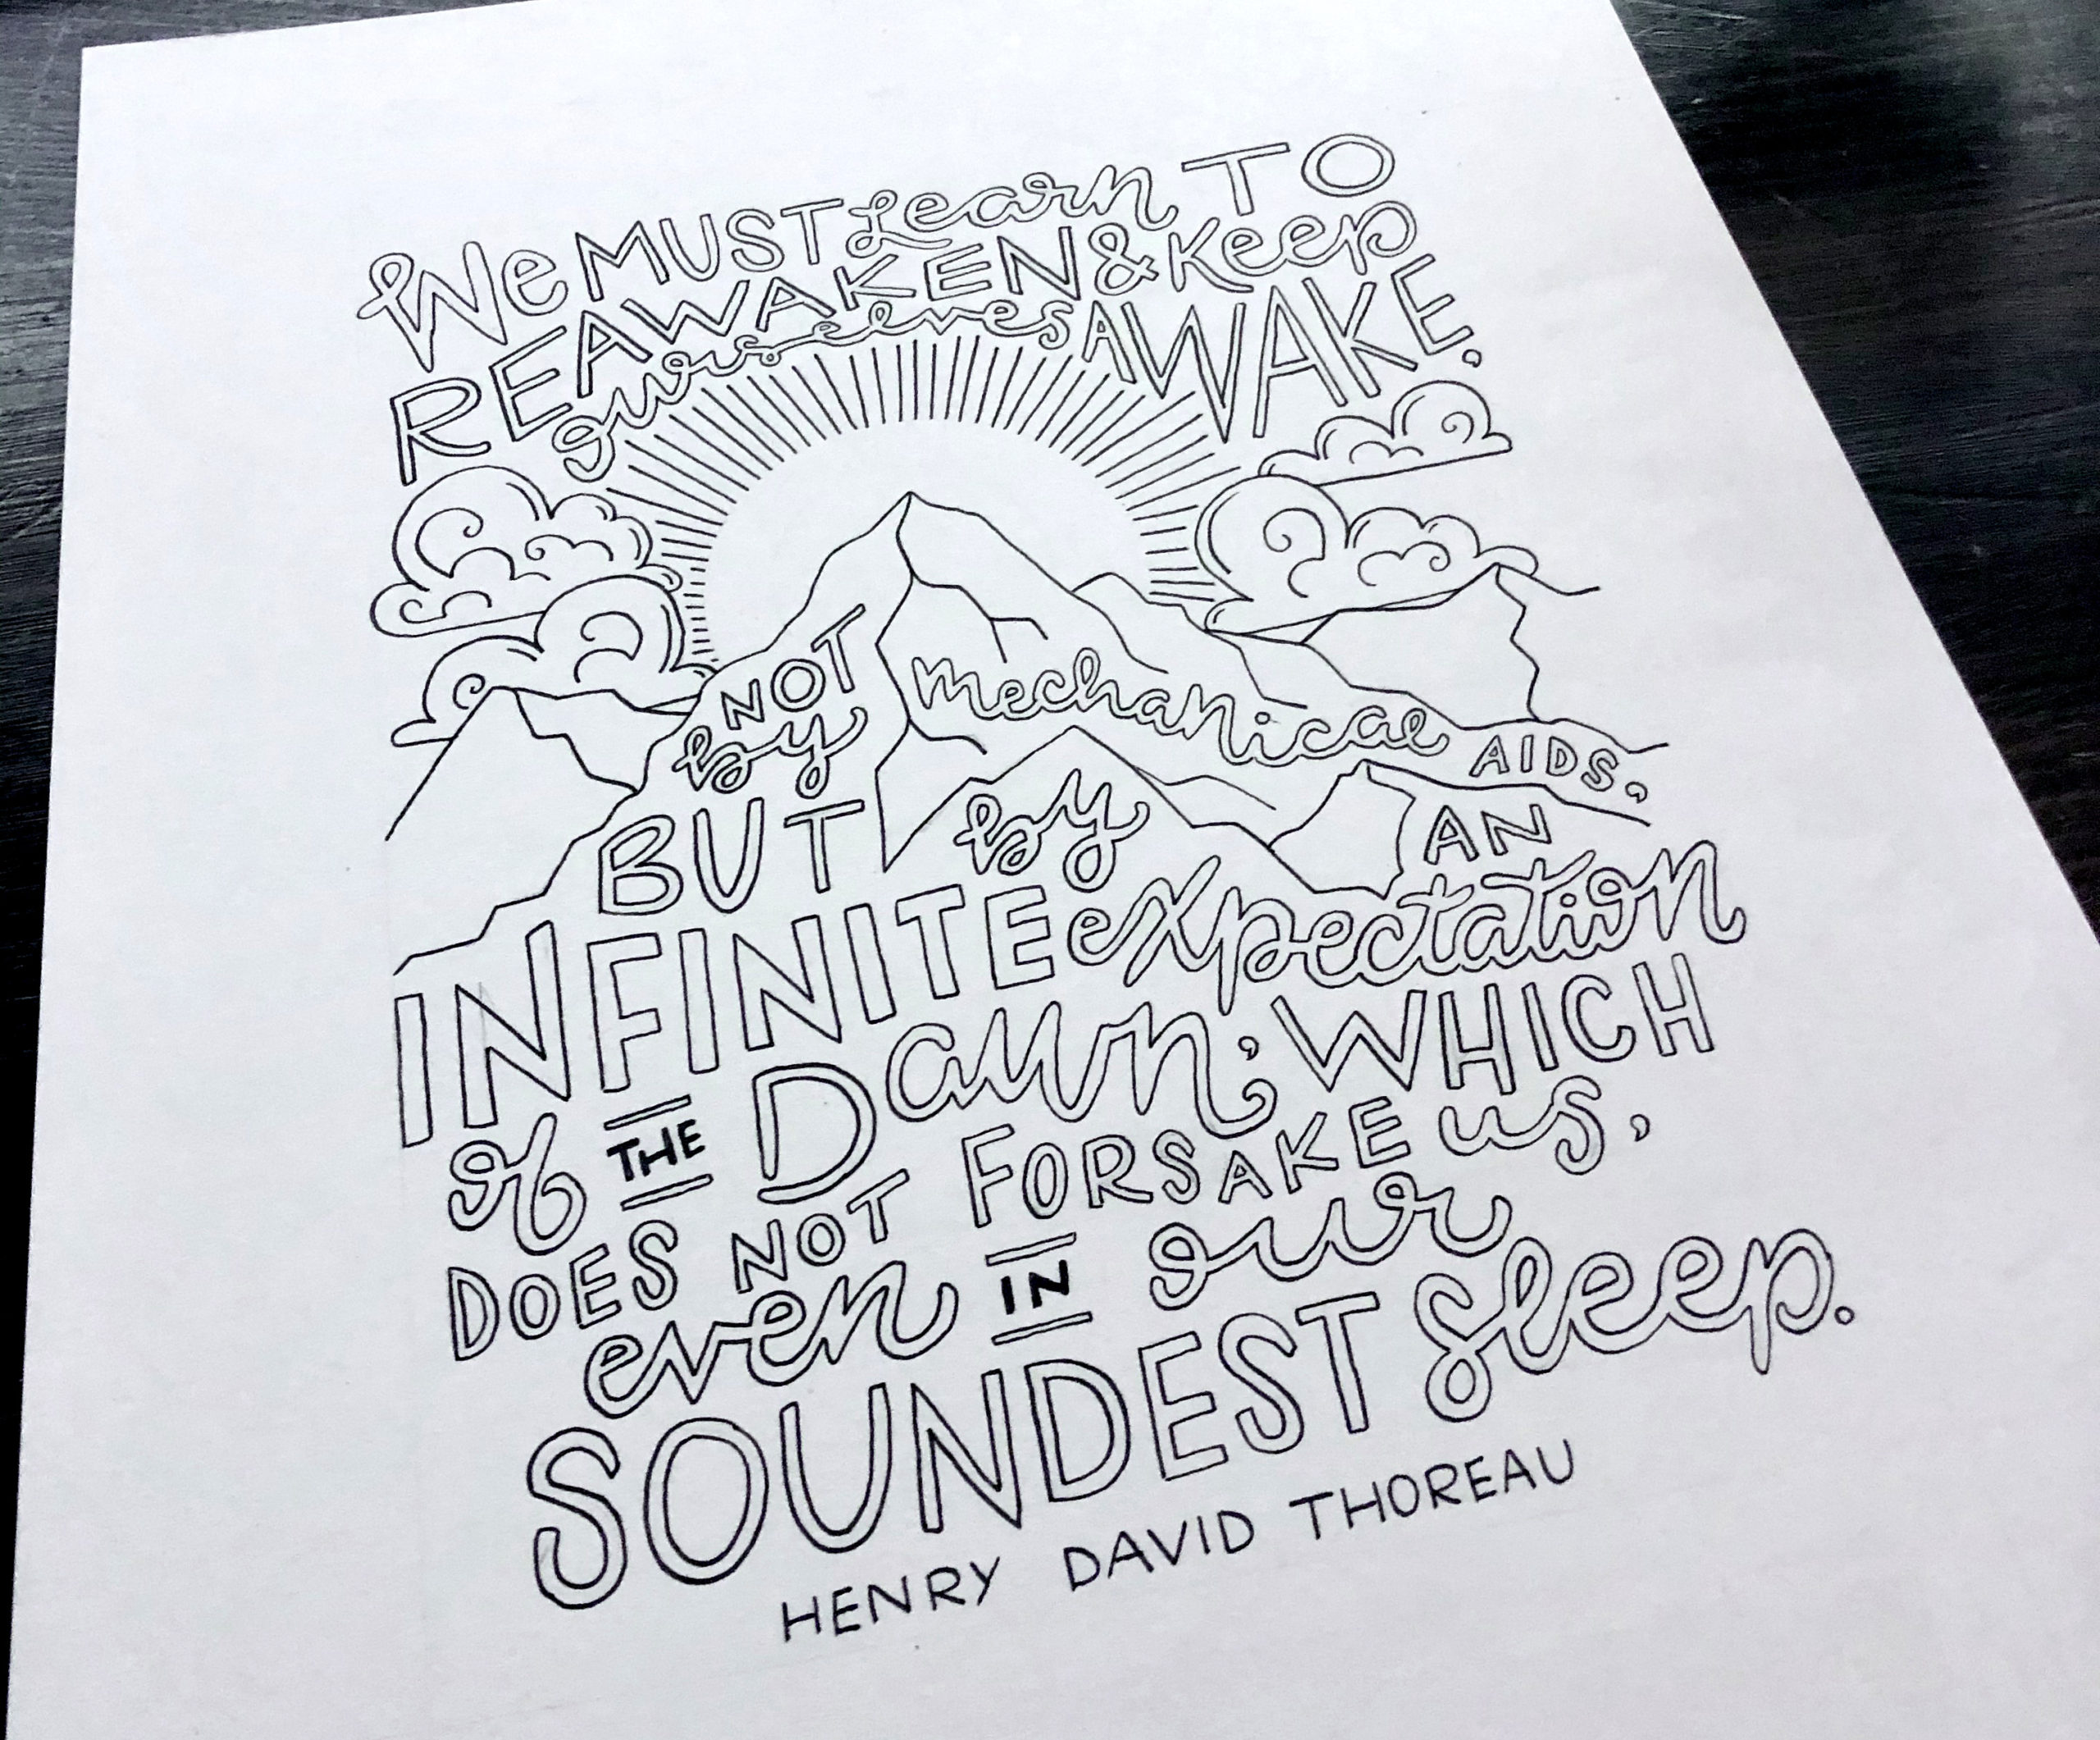 We MUST Learn TO
REAWAKEN & Keep
ourselves AWAKE,
NOT mechanical AIDS,
by
BUT by AN
INFINITE expectation
of THE Dawn; WHICH
DOES NOT FORSAKE us,
even IN our
SOUNDEST sleep.
HENRY DAVID THOREAU